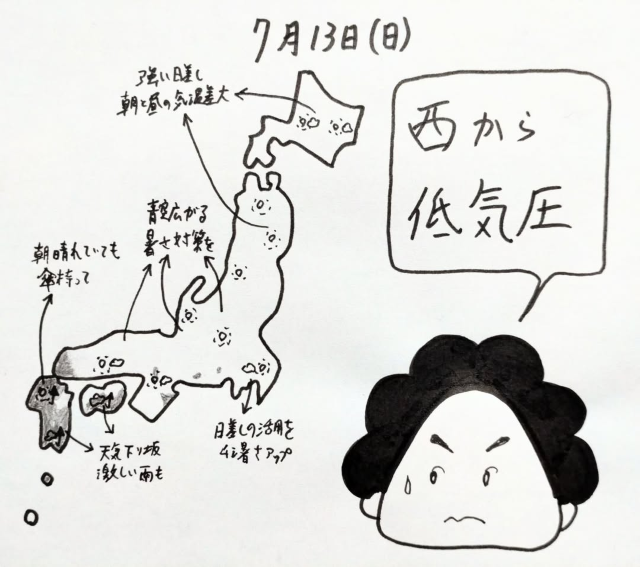 7月13日(日)
強い日差し
朝と昼の気温差大
西から
低気圧
青空広がる
暑さ対策を
朝晴れていても
傘持って
天気下り坂
激しい雨も
日差しの活用を
暑さアップ